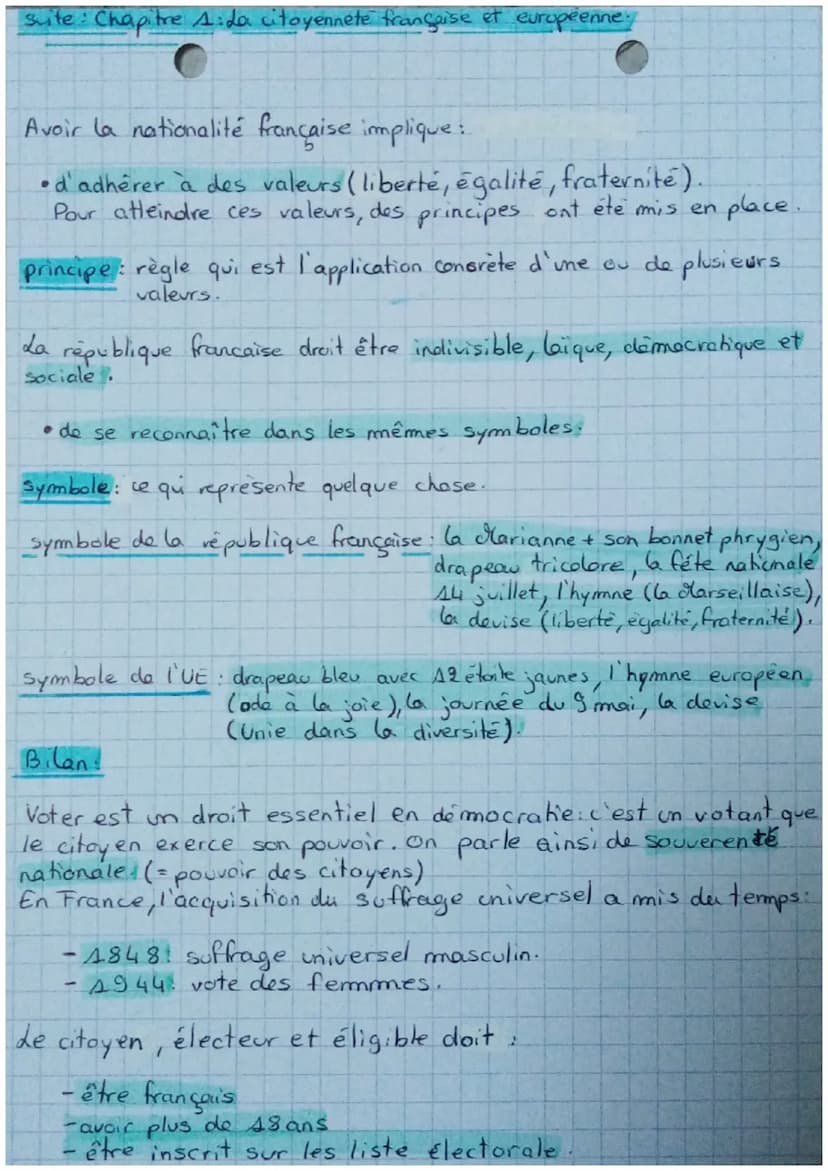 Suite : Chapitre 1 : La citoyenneté française et européenne.
Avoir la nationalité française implique :
• d'adhérer à des valeurs (liberté, égalité, fraternité).
Pour atteindre ces valeurs, des principes ont été mis en place.
principe : règle qui est l'application concrète d'une ou de plusieurs
valeurs.
La république francaise droit être indivisible, laïque, démocratique et
sociale.
• de se reconnaître dans les mêmes symboles.
symbole : ce qui représente quelque chose.
symbole de la république française : la Marianne + son bonnet phrygien,
drapeau tricolore, la fête nationale
14 juillet, l'hymne (la Marseillaise),
la devise (liberté, égalité, fraternité).
symbole de l'UE : drapeau bleu avec 12 étoile jaunes, l'hymne européen
(ode à la joie), la journée du 9 mai, la devise
(Unie dans la diversité).
Bilan :
Voter est un droit essentiel en démocratie : c'est un votant que
le citoyen exerce son pouvoir. On parle ainsi de souverenté
nationale (= pouvoir des citoyens)
En France, l'acquisition du suffrage universel a mis du temps :
- 1848 : suffrage universel masculin.
- 1944 : vote des femmes.
Le citoyen, électeur et éligible doit :
- être français
- avoir plus de 18 ans
- être inscrit sur les liste électorale.